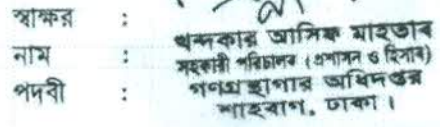 স্বাক্ষর :
নাম : খন্দকার আসিফ মাহতাব
সহকারী পরিচালক (প্রশাসন ও হিসাব)
পদবী : গনগ্রন্থাগার অধিদপ্তর
শাহবাগ, ঢাকা ।